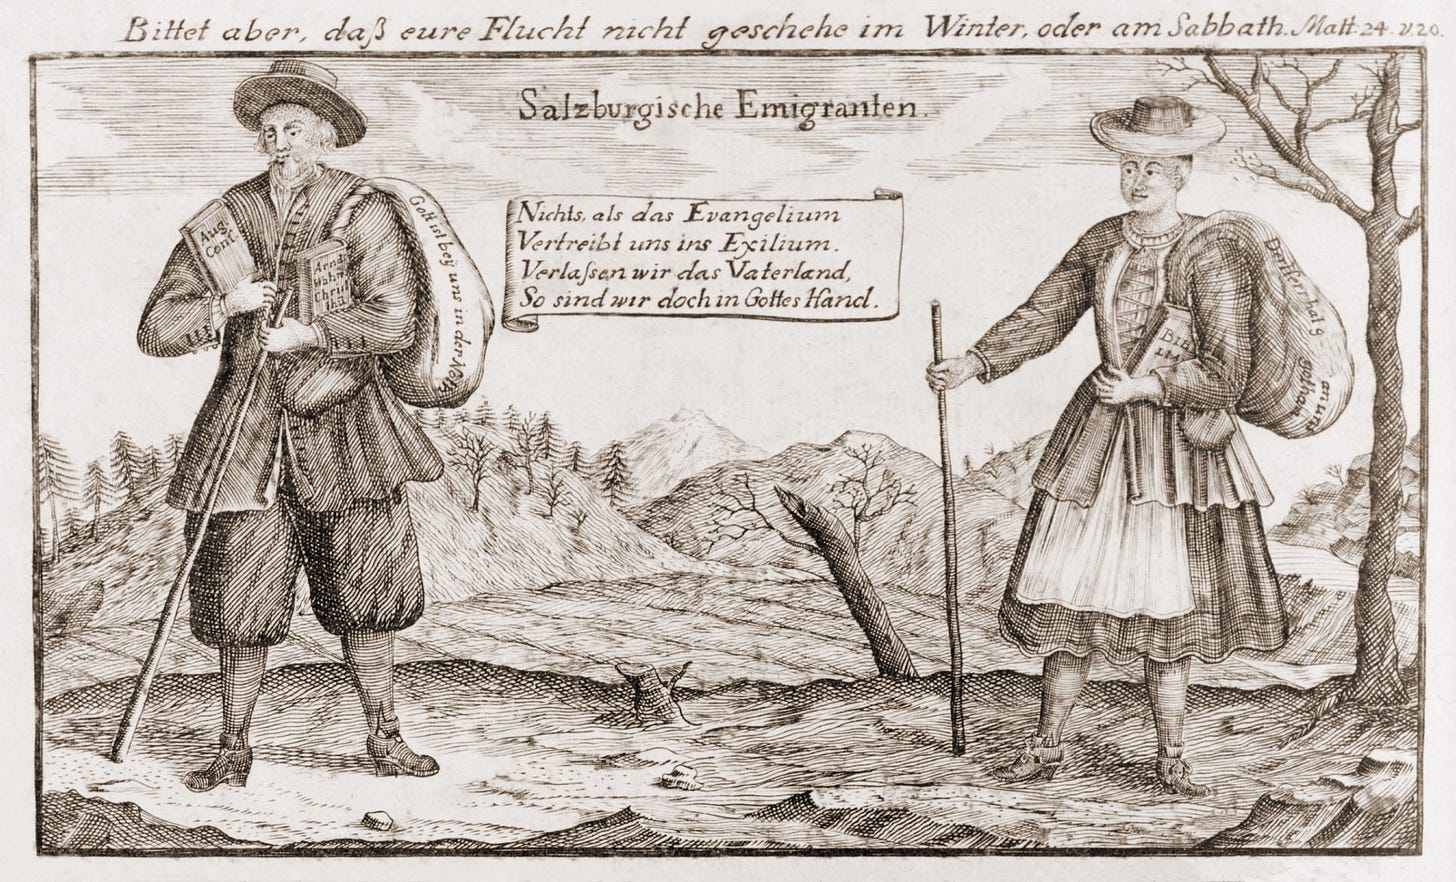 Bittet aber, daß eure Flucht nicht geschehe im Winter, oder am Sabbath. Matt: 24. v. 20.
Salzburgische Emigranten.
Nichts, als das Evangelium
Vertreibt uns ins Exilium.
Verlaßen wir das Vaterland,
So sind wir doch in Gottes Hand.
Aug.
Conf.
Arnds
Christ
Gott ist beÿ uns in der Noth
Bib
an uns gethan